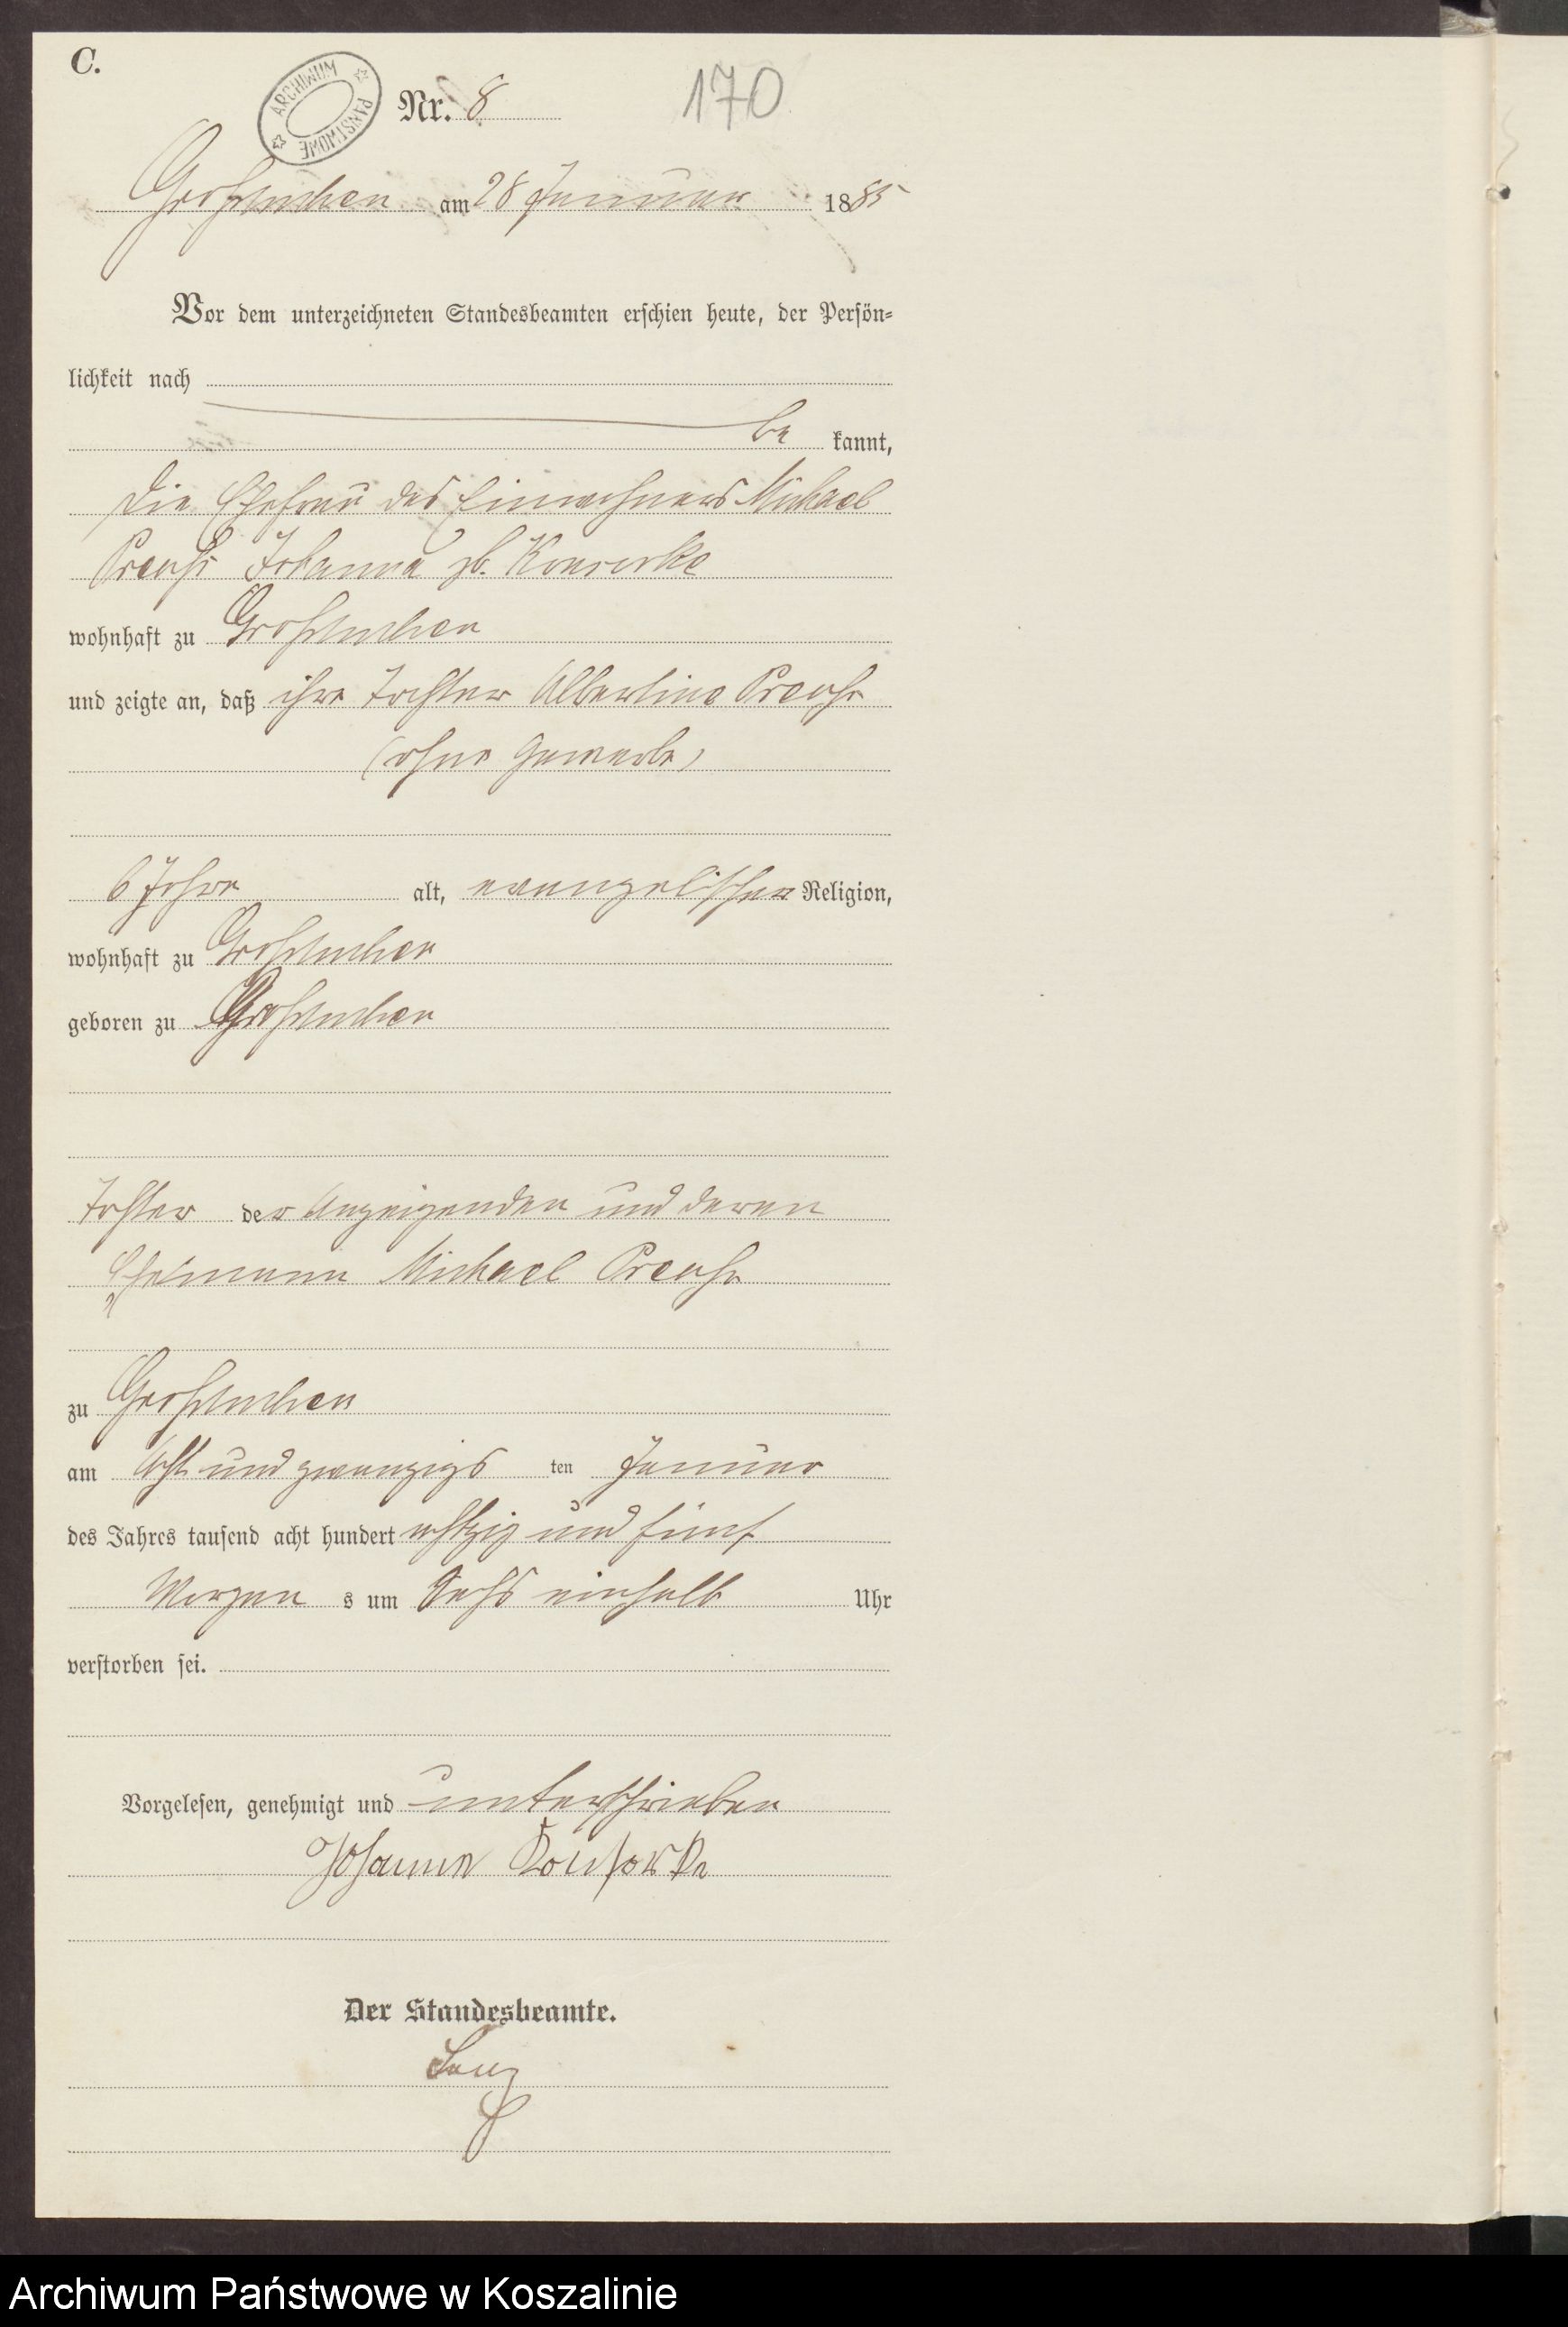 C.
ARCHIWUM PAŃSTWOWE
Nr. 8
170
Großtuchen am 28 Januar 1885
Vor dem unterzeichneten Standesbeamten erschien heute, der Persön-
lichkeit nach
be kannt,
die Ehefrau des Einwohners Michael
Preuß Johanna gb.
wohnhaft zu Großtuchen
und zeigte an, daß ihre Tochter Albertine Preuß
(ohne Gewerbe)
6 Jahre alt, evangelischer Religion,
wohnhaft zu Großtuchen
geboren zu Großtuchen
Tochter der Anzeigenden und deren
Ehemann Michael Preuß
zu Großtuchen
am Acht und zwanzigs ten Januar
des Jahres tausend acht hundert achtzig und fünf
Morgen s um Sechs einhalb Uhr
verstorben sei.
Vorgelesen, genehmigt und unterschrieben
Johanna
Der Standesbeamte.
Archiwum Państwowe w Koszalinie